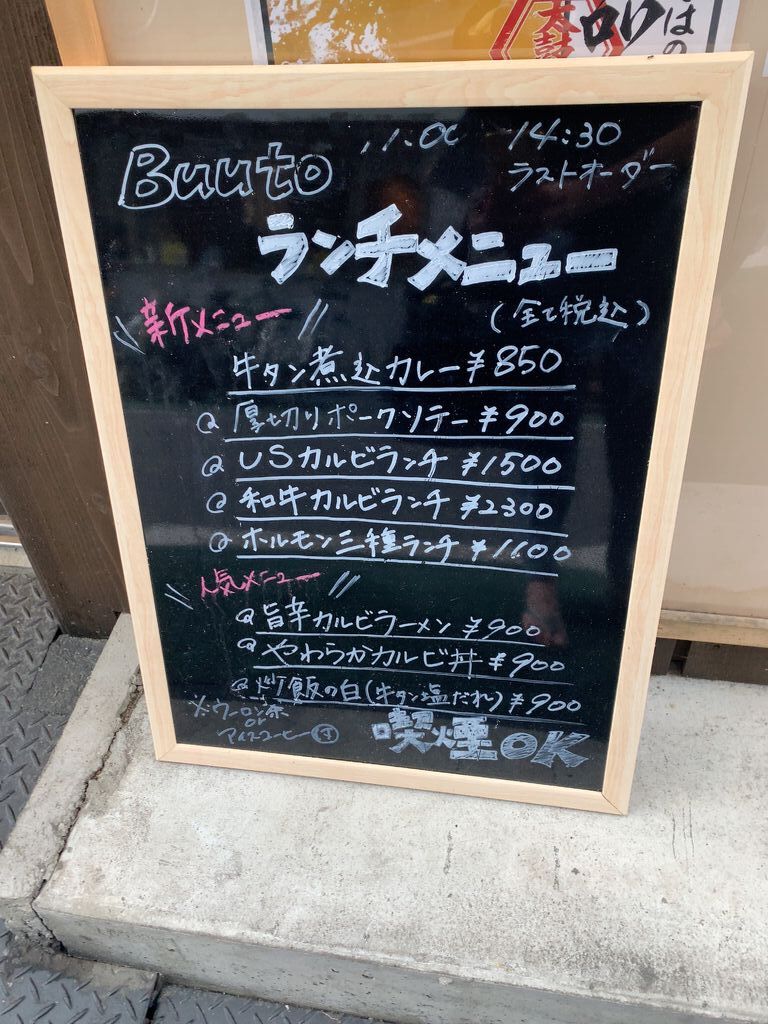 太鼓
はの
Buuto 11:00 14:30
ラストオーダー
ランチメニュー
(全て税込)
新メニュー
牛タン煮込カレー ¥850
厚切りポークソテー ¥900
USカルビランチ ¥1500
和牛カルビランチ ¥2300
ホルモン三種ランチ ¥1100
人気メニュー
旨辛カルビラーメン ¥900
やわらかカルビ丼 ¥900
炒飯の白(牛タン塩だれ) ¥900
※ウーロン茶
or
アイスコーヒー 付
喫煙OK